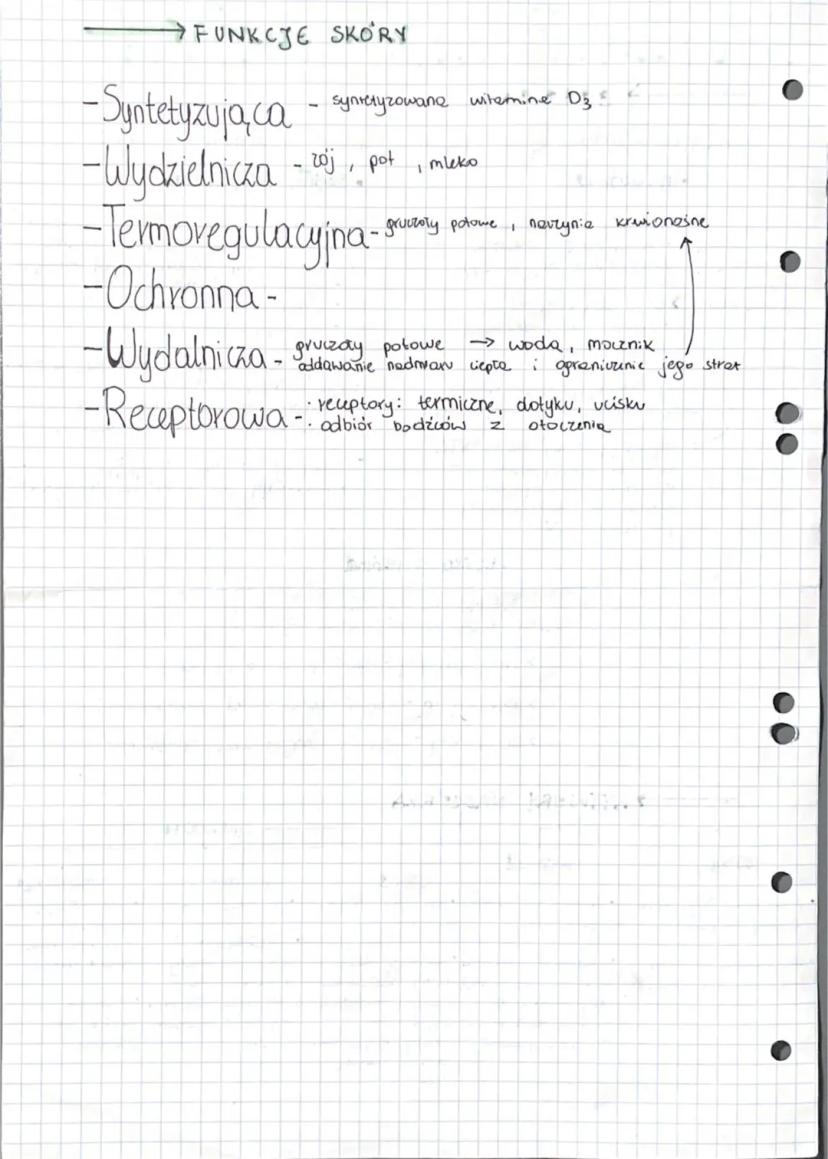 → FUNKCJE SKÓRY
- Syntetyzująca - syntetyzowana witamina D3
- Wydzielnicza - łój, pot, mleko
- Termoregulacyjna - gruczoły potowe, naczynia krwionośne
- Ochronna -
- Wydalnicza - gruczoły potowe → woda, mocznik
oddawanie nadmiaru ciepła i ograniczenie jego strat
- Receptorowa - · receptory: termiczne, dotyku, ucisku
· odbiór bodźców z otoczenia